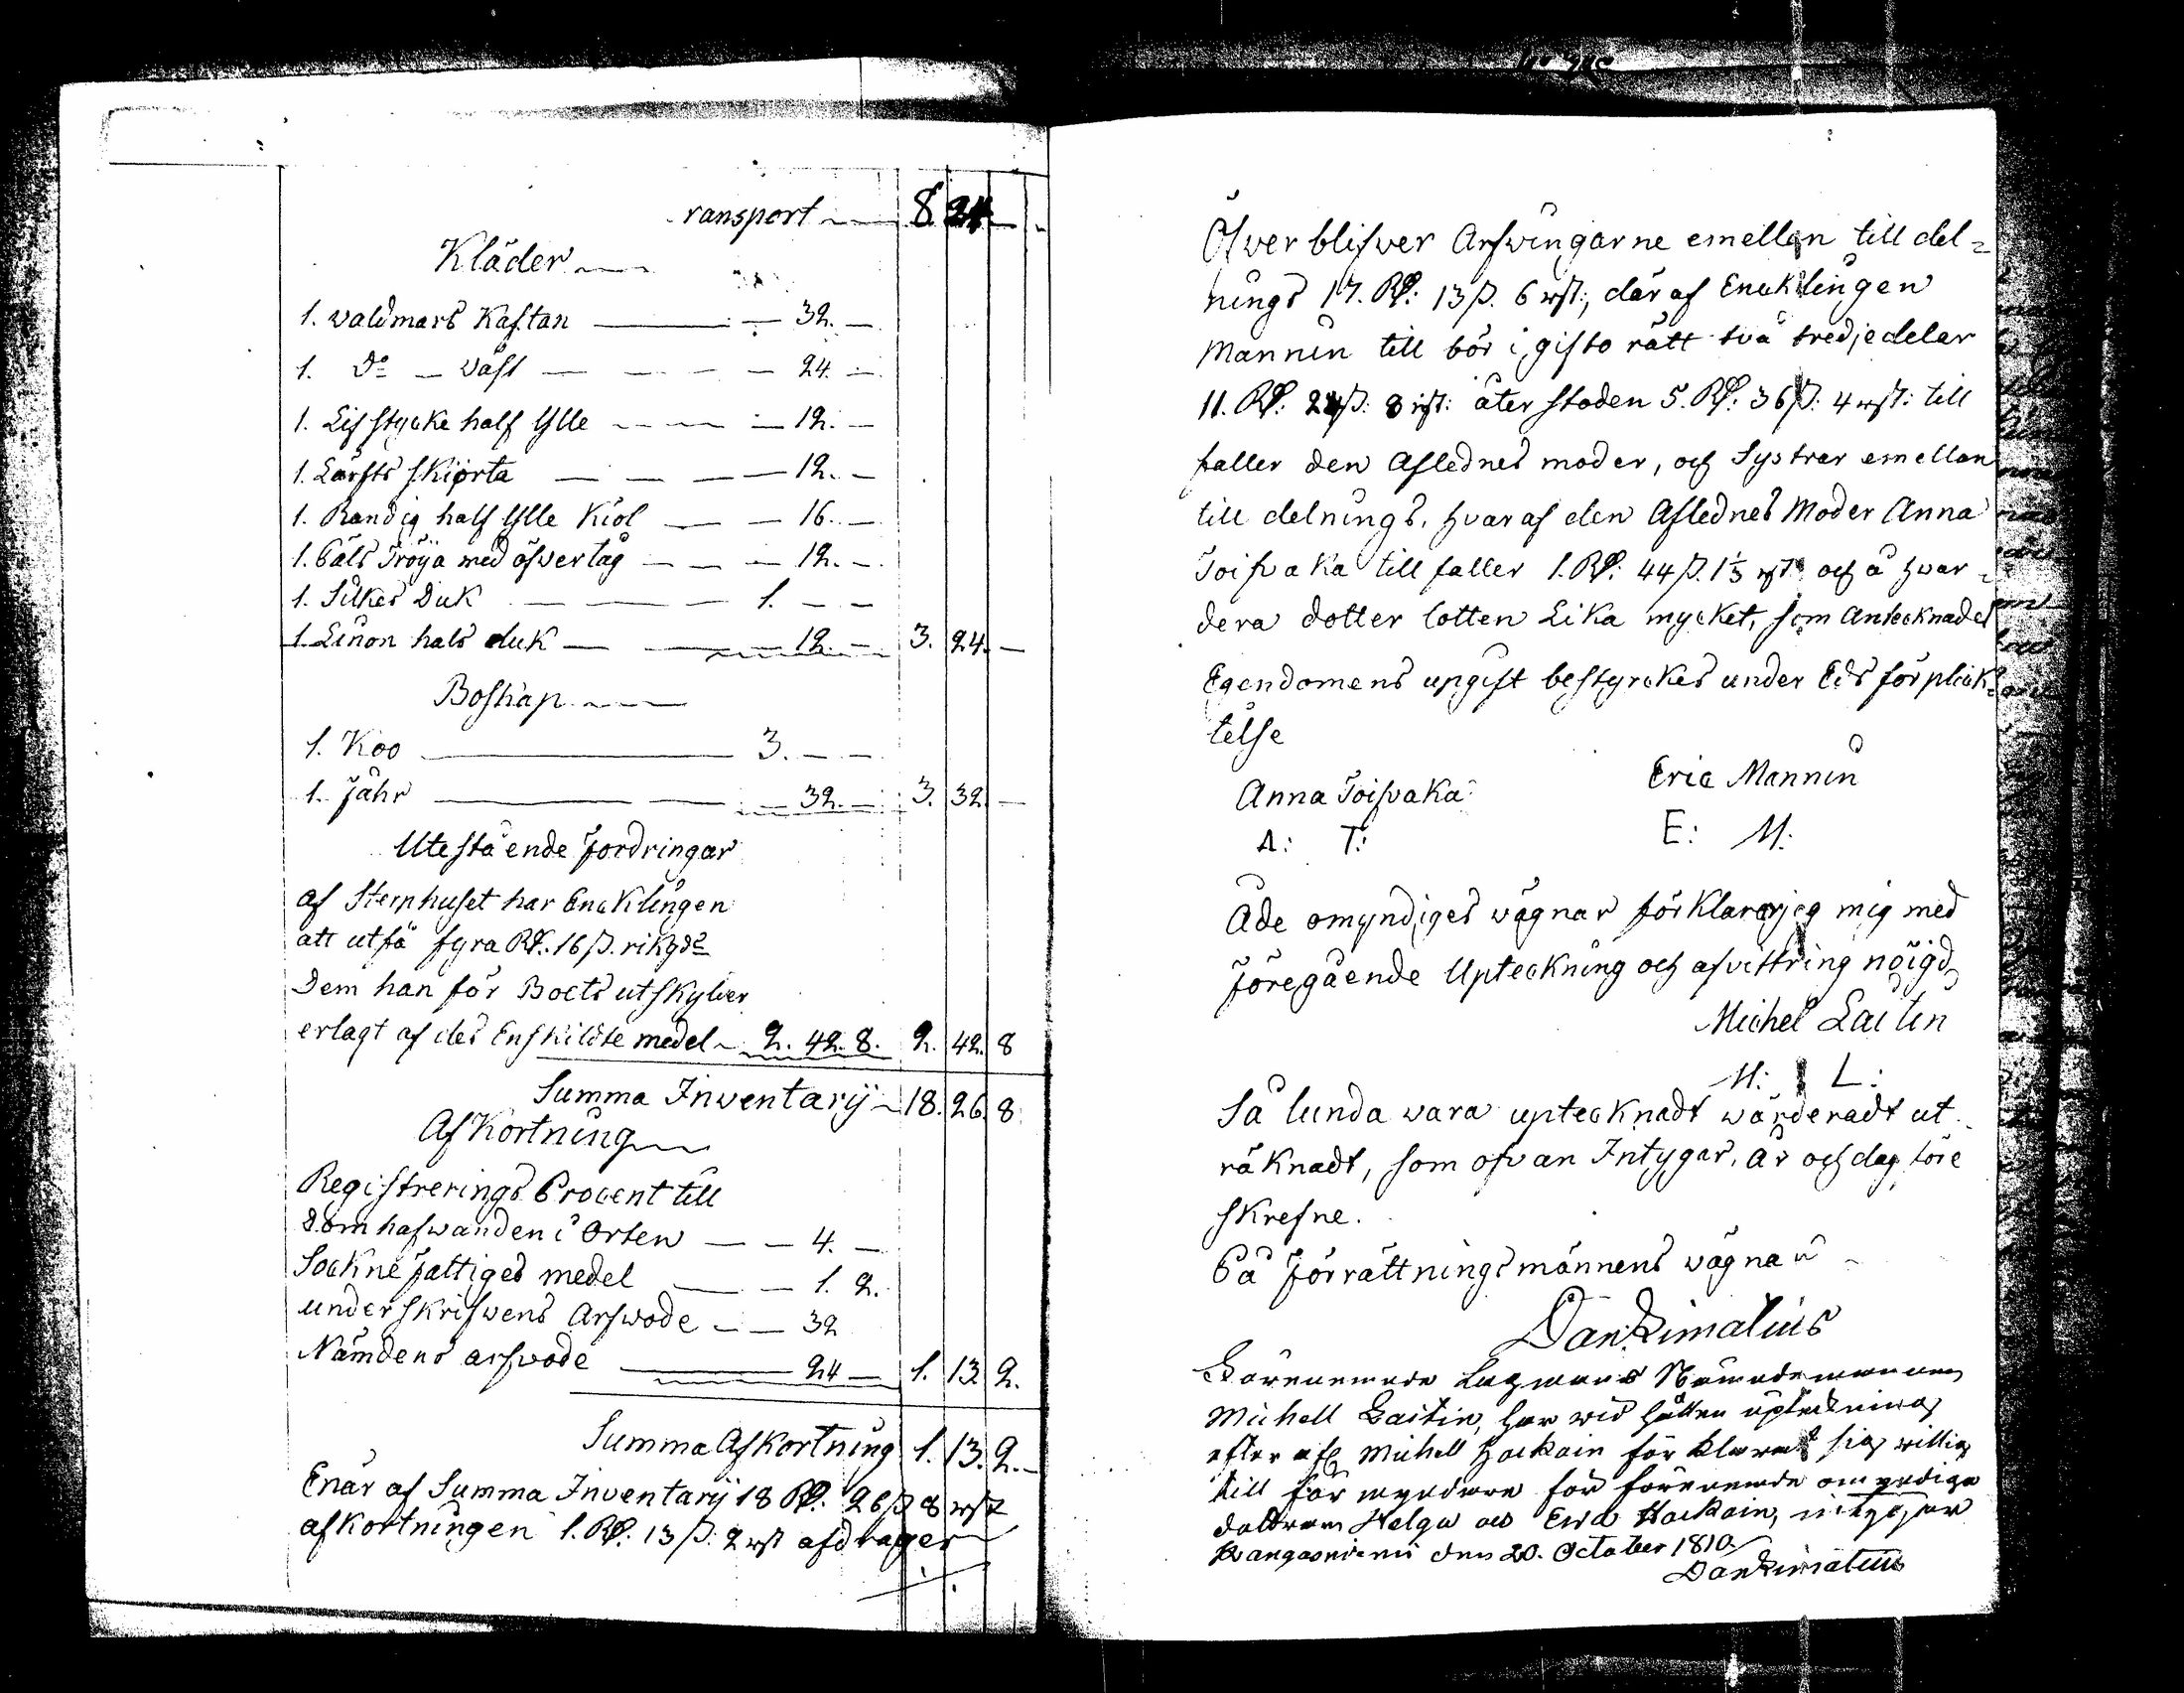 ransport 8. 24. —
Kläder
1. valdmars Kaftan — 32. —
1. Do — väst — 24. —
1. Lifstycke half Ylle — 12. —
1. Lärfts skiorta — 12. —
1. Randig half Ylle Kiol — 16. —
1. Päls Tröija med öfvertåg — 12. —
1. Silkes Duk — 1. — —
1. Linon hals duk — 12. — 3. 24. —
Boskap
1. Koo — 3. — —
1. Fåhr — 32. — 3. 32. —
Utestående Fordringar
af Sterphuset har Encklingen
att utfå fyra Rd. 16 ß. rikgds
Dem han för Boets utskylder
erlagt af des Enskildte medel 2. 42. 8. 2. 42. 8
Summa Inventarij 18. 26. 8
Afkortning
Registrerings Procent till
Domhafwanden i Orten — 4. —
Sockne Fattiges medel — 1. 2.
underskrifwens Arfwode — 32
Nämdens arfvode — 24 — 1. 13. 2.
Summa Afkortning 1. 13. 2. —
Enär af Summa Inventarij 18 Rd: 26 ß 8 rst
afkortningen 1. Rd: 13 ß: 2 rst afdrages
Öfver blifver Arfvingarne emellan till del=
nings 17. Rd: 13 ß. 6 rst:, där af Encklingen
Mannin till bör i gifto rätt två tredjedelar
11. Rd: 24 ß: 8 rst: åter stoden 5. Rd: 36 ß: 4 rst: till
faller den Aflednes moder, och Systrar emellan
till delnings, hvaraf den Aflednes Moder Anna
Toifvaka till faller 1. Rd: 44 ß. 1⅓ rst och å hvar=
dera dotter lotten Lika mycket, som Antecknades
Egendomens upgift bestyrckes under Eds förplick=
telse
Anna Toifvaka Eric Mannin
A: T: E: M:
Å de omyndiges vägnar förklarar jag mig med
Föregående Upteckning och afvittring nöigd,
Michel Laitin
M: L:
Så lunda vara uptecknadt wärderadt ut
räknadt, som ofvan Intygar, År och dag före
skrefne.
På Förrättningsmännens vägnar
Dan: Limatius
Nämndemannen
Michell Laitin, har wid hållen upteckning
efter afl. Michell Hackain för klarat sig willig
till för myndare för förenemde omyndiga
dottrar Helga och Ewa Hackain, intygar
Kangasniemi den 20. October 1810.
Dan Limatius